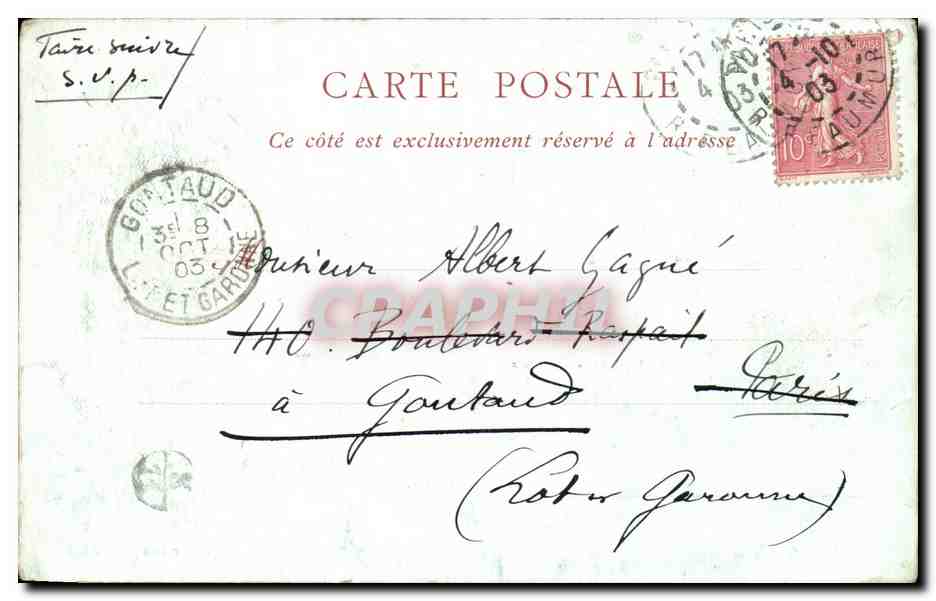 Faire suivre
S.V.P.
CARTE POSTALE
Ce côté est exclusivement réservé à l'adresse
17
4 -10
03
RÉPUBLIQUE FRANÇAISE
10
POSTES
GONTAUD
3E 8
OCT
03
LOT ET GARONNE
Monsieur Albert Gagné
CRAPHIL
140. Boulevard Raspail
à Gontaud Paris
(Lot et Garonne)